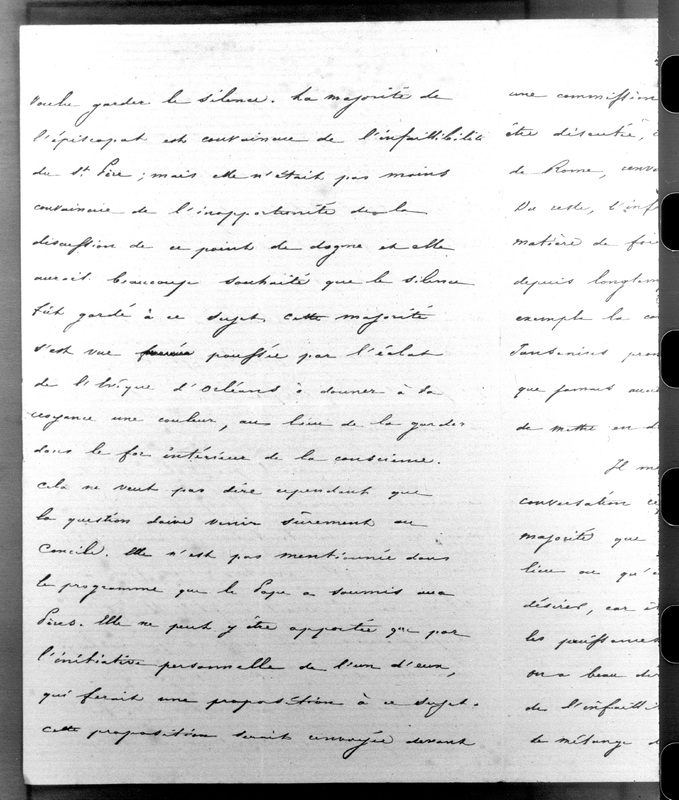 voulu garder le silence. La majorité de
l'épiscopat est convaincue de l'infaillibilité
du St Père ; mais elle n'était pas moins
convaincue de l'inopportunité de la
discussion de ce point de dogme et elle
aurait beaucoup souhaité que le silence
fût gardé à ce sujet. Cette majorité
s'est vue poussée par l'éclat
de l'Evêque d'Orléans à donner à sa
croyance une couleur, au lieu de la garder
dans le for intérieur de la conscience.
Cela ne veut pas dire cependant que
la question doive venir sûrement au
Concile. Elle n'est pas mentionnée dans
le programme que le Pape a soumis aux
Pères. Elle ne peut y être apportée que par
l'initiative personnelle de l'un d'eux,
qui ferait une proposition à ce sujet.
Cette proposition serait envoyée devant
une commission
être discutée,
de Rome,
Du reste, l'inf
matière de foi
depuis longtem
exemple la
que
de mettre en d
Il
conversation
majorité que
lieu ou qu'
désirée, car
les puissances
on a beau
de l'infailli
le mélange